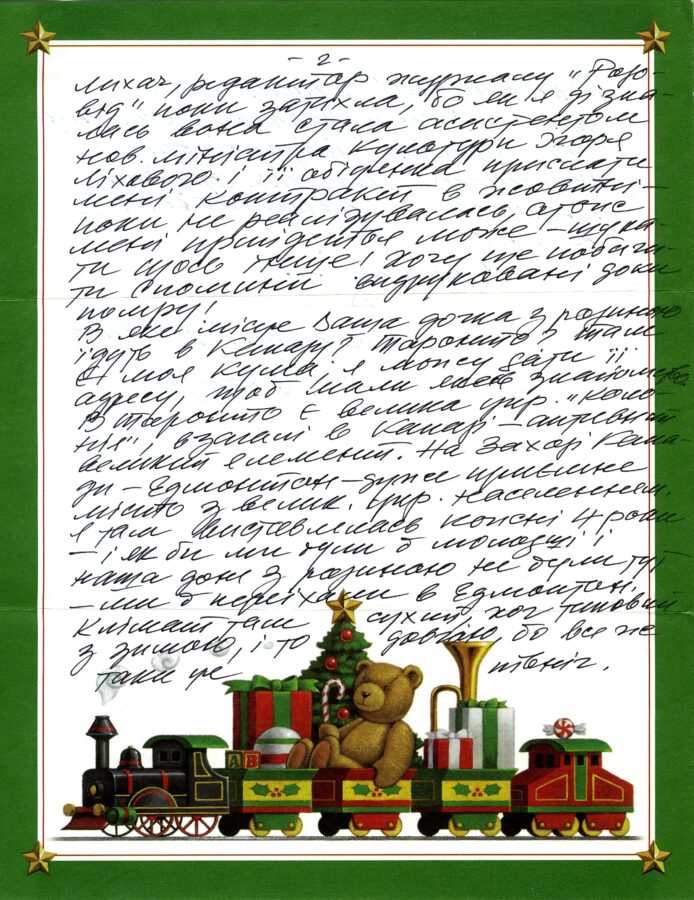 - 2 -
лихач, редактор журналу "Розо-
від" поки затихла, бо як я дізна-
лась вона стала асистентом
нов. міністра культури Ігоря
Ліхового і її обіцянка прислати
мені контракт в жовтні -
поки не реалізувалась, отож
мені прийдеться може - шука-
ти щось інше! Хочу ще побачи-
ти спомини видруковані доки
помру!
В яке місце Ваша дочка з родиною
їдуть в Канаду? Торонто? Там
є моя кума, я можу дати її
адресу, щоб мали якесь знайомство.
В Торонто є велика укр. "коло-
нія", взагалі в Канаді - активний
великий елемент. На заході Кана-
ди - Едмонтон - дуже приємне
місто з велик. укр. населенням.
Я там виставлялась кожні 4 роки
- і як би ми були б молодші і
наша доня з родиною не були тут
- ми б переїхали в Едмонтон.
Клімат там сухий хоч типовий
з зимою, і то довгою, бо все же
таки це північ.
A B